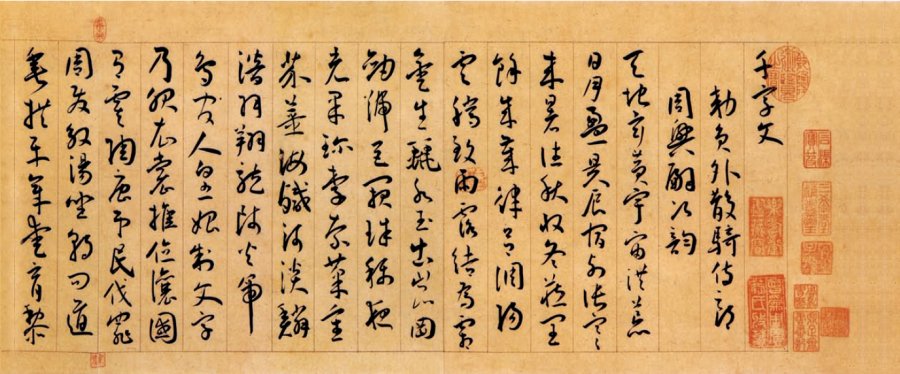 千字文
勑員外散騎侍郎
周興嗣次韻
天地玄黄宇宙洪荒
日月盈昃辰宿列張寒
来暑往秋收冬藏閏
餘成歲律吕調陽
雲騰致雨露結為霜
金生麗水玉出崑岡
劍號巨闕珠稱夜
光果珍李柰菜重
芥薑海鹹河淡鱗
潛羽翔龍師火帝
鳥官人皇始制文字
乃服衣裳推位讓國
有虞陶唐弔民伐罪
周發殷湯坐朝問道
垂拱平章愛育黎